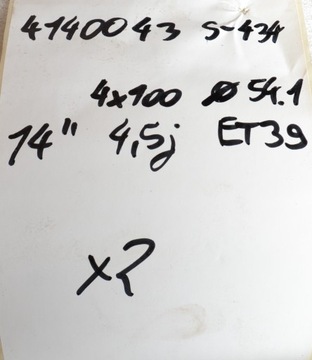 4140043 S-434
4x100 Ø 54.1
14" 4,5j ET39
x2